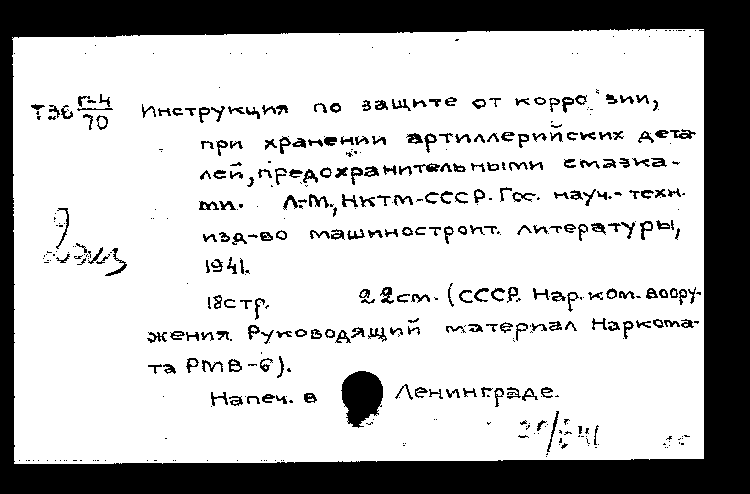 Т36 Г-4/70 Инструкция по защите от коррозии,
при хранении артиллерийских дета-
лей, предохранительными смазка-
ми. Л.-М., НКТМ-СССР. Гос. науч.-техн.
изд-во машиностроит. литературы,
1941.
18 стр. 22 см. (СССР. Нар. ком. воору-
жения. Руководящий материал Наркома-
та РМВ-6).
Напеч. в Ленинграде.
2 экз